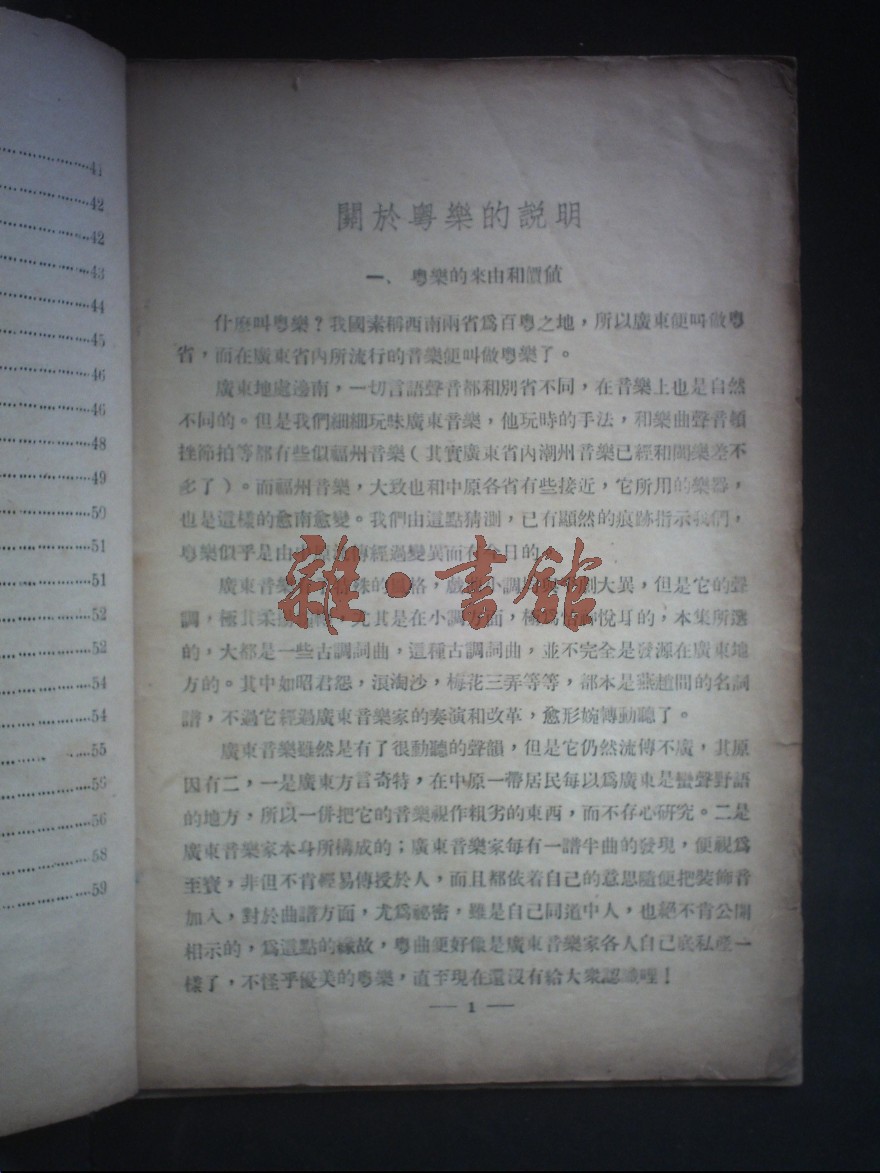 41
42
42
43
44
45
46
46
48
49
50
51
51
52
52
54
54
55
56
56
58
59
關於粵樂的説明
一、粵樂的來由和價值
什麽叫粵樂?我國素稱西南兩省爲百粵之地,所以廣東便叫做粵
省,而在廣東省內所流行的音樂便叫做粵樂了。
廣東地處邊南,一切言語聲音都和別省不同,在音樂上也是自然
不同的。但是我們細細玩味廣東音樂,他玩時的手法,和樂曲聲音頓
挫節拍等都有些似福州音樂(其實廣東省內潮州音樂已經和閩樂差不
多了)。而福州音樂,大致也和中原各省有些接近,它所用的樂器,
也是這樣的愈南愈變。我們由這點猜測,已有顯然的痕跡指示我們,
粵樂似乎是由中原流傳經過變異而有今日的。
廣東音樂有格,戲小調大異,但是它的聲
調,極其柔尤其是在小調方面,極爲悅耳的,本集所選
的,大都是一些古調詞曲,這種古調詞曲,並不完全是發源在廣東地
方的。其中如昭君怨,浪淘沙,梅花三弄等等,都本是燕趙間的名詞
譜,不過它經過廣東音樂家的奏演和改革,愈形婉轉動聽了。
廣東音樂雖然是有了很動聽的聲韻,但是它仍然流傳不廣,其原
因有二,一是廣東方言奇特,在中原一帶居民每以爲廣東是蠻聲野語
的地方,所以一併把它的音樂視作粗劣的東西,而不存心研究。二是
廣東音樂家本身所構成的;廣東音樂家每有一譜半曲的發現,便視爲
至寶,非但不肯輕易傳授於人,而且都依着自己的意思隨便把裝飾音
加入,對於曲譜方面,尤爲祕密,雖是自己同道中人,也絕不肯公開
相示的,爲這點的緣故,粵曲便好像是廣東音樂家各人自己底私產一
樣了,不怪乎優美的粵樂,直至現在還沒有給大衆認識哩!
— 1 —
雜·書館